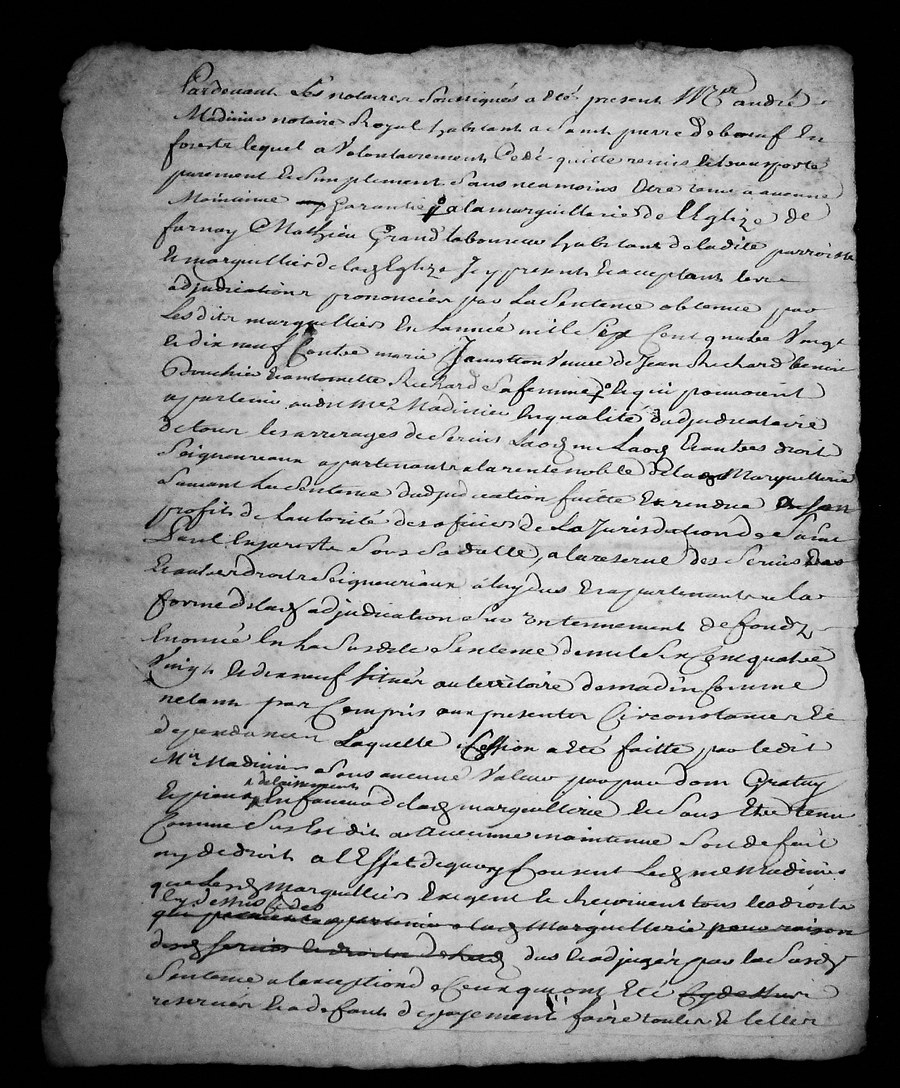 Pardevant Les notaires Soussignés a eté present Mer andré
Madinier notaire Royal habitant a Saint pierre De bœuf En
forestz lequel a Volontairement Cedé quitte remis Et transporte
purement Et Simplement Sans neamoins Etre tenu a aucune
Maintenue garantie a la marguillerie de l'Eglize de
farnay Mathieu Grand laboureur habitant de ladite parroisse
Et marguillier de lad Eglize Icy present Et acceptant les
adjudications prononcées par La Sentence obtenue par
Les dits marguilliers En Lannée mil Sept Cent quatre Vingt
Et dix neuf Contre marie Jamotton Veuve de Jean Richard benoit
Et antoinette Richard Sa femme Et qui pouvoient
apartenir audit Me Madinier En qualité d'adjudicataire
De tous les arrerages de Servis Laods my Laods Et autres droits
Seigneuriaux apartenants a la rente noble De la Marguillerie
Suivant La Sentence d'adjudication faitte Et rendue a Son
profit de L'autorité des officiers de La Jurisdiction de Saint
Paul En Jarest Sous Sa datte, a la reserve des Servis
Et autres droits Seigneuriaux a luy dus Et apartenants a la
forme de lad adjudication Sur Un tennement de fondz
Enoncé En la Susdite Sentence de mil Six Cent quatre
Vingt Et dix neuf Situés au territoire de madin Comme
netant pas Compris aux presentes Circonstances Et
dependances Laquelle Cession a Eté faitte par ledit
Mer Madinier Sans aucune Valeur pour pur Dom Gratuy
delaissement
Et pieux En faveur de lad marguillerie Et Sans Etre tenu
Comme Sus Est dit a aucune maintenue Soit de fait
ny de droit a l'Effet de quoy Consent Led me Madinier
que Lesd Marguilliers Exigent Et Recoivent tous les droits
Cy dessus Cedes
apartenir a lad Marguillerie pour raison
desd Servis Et droits De Laods dus Et adjugés par la Susd
Sentence a l'exception de Ceux qui ont Eté Cy dessus
reservés Et a defaut de payement faire toutes Et telles